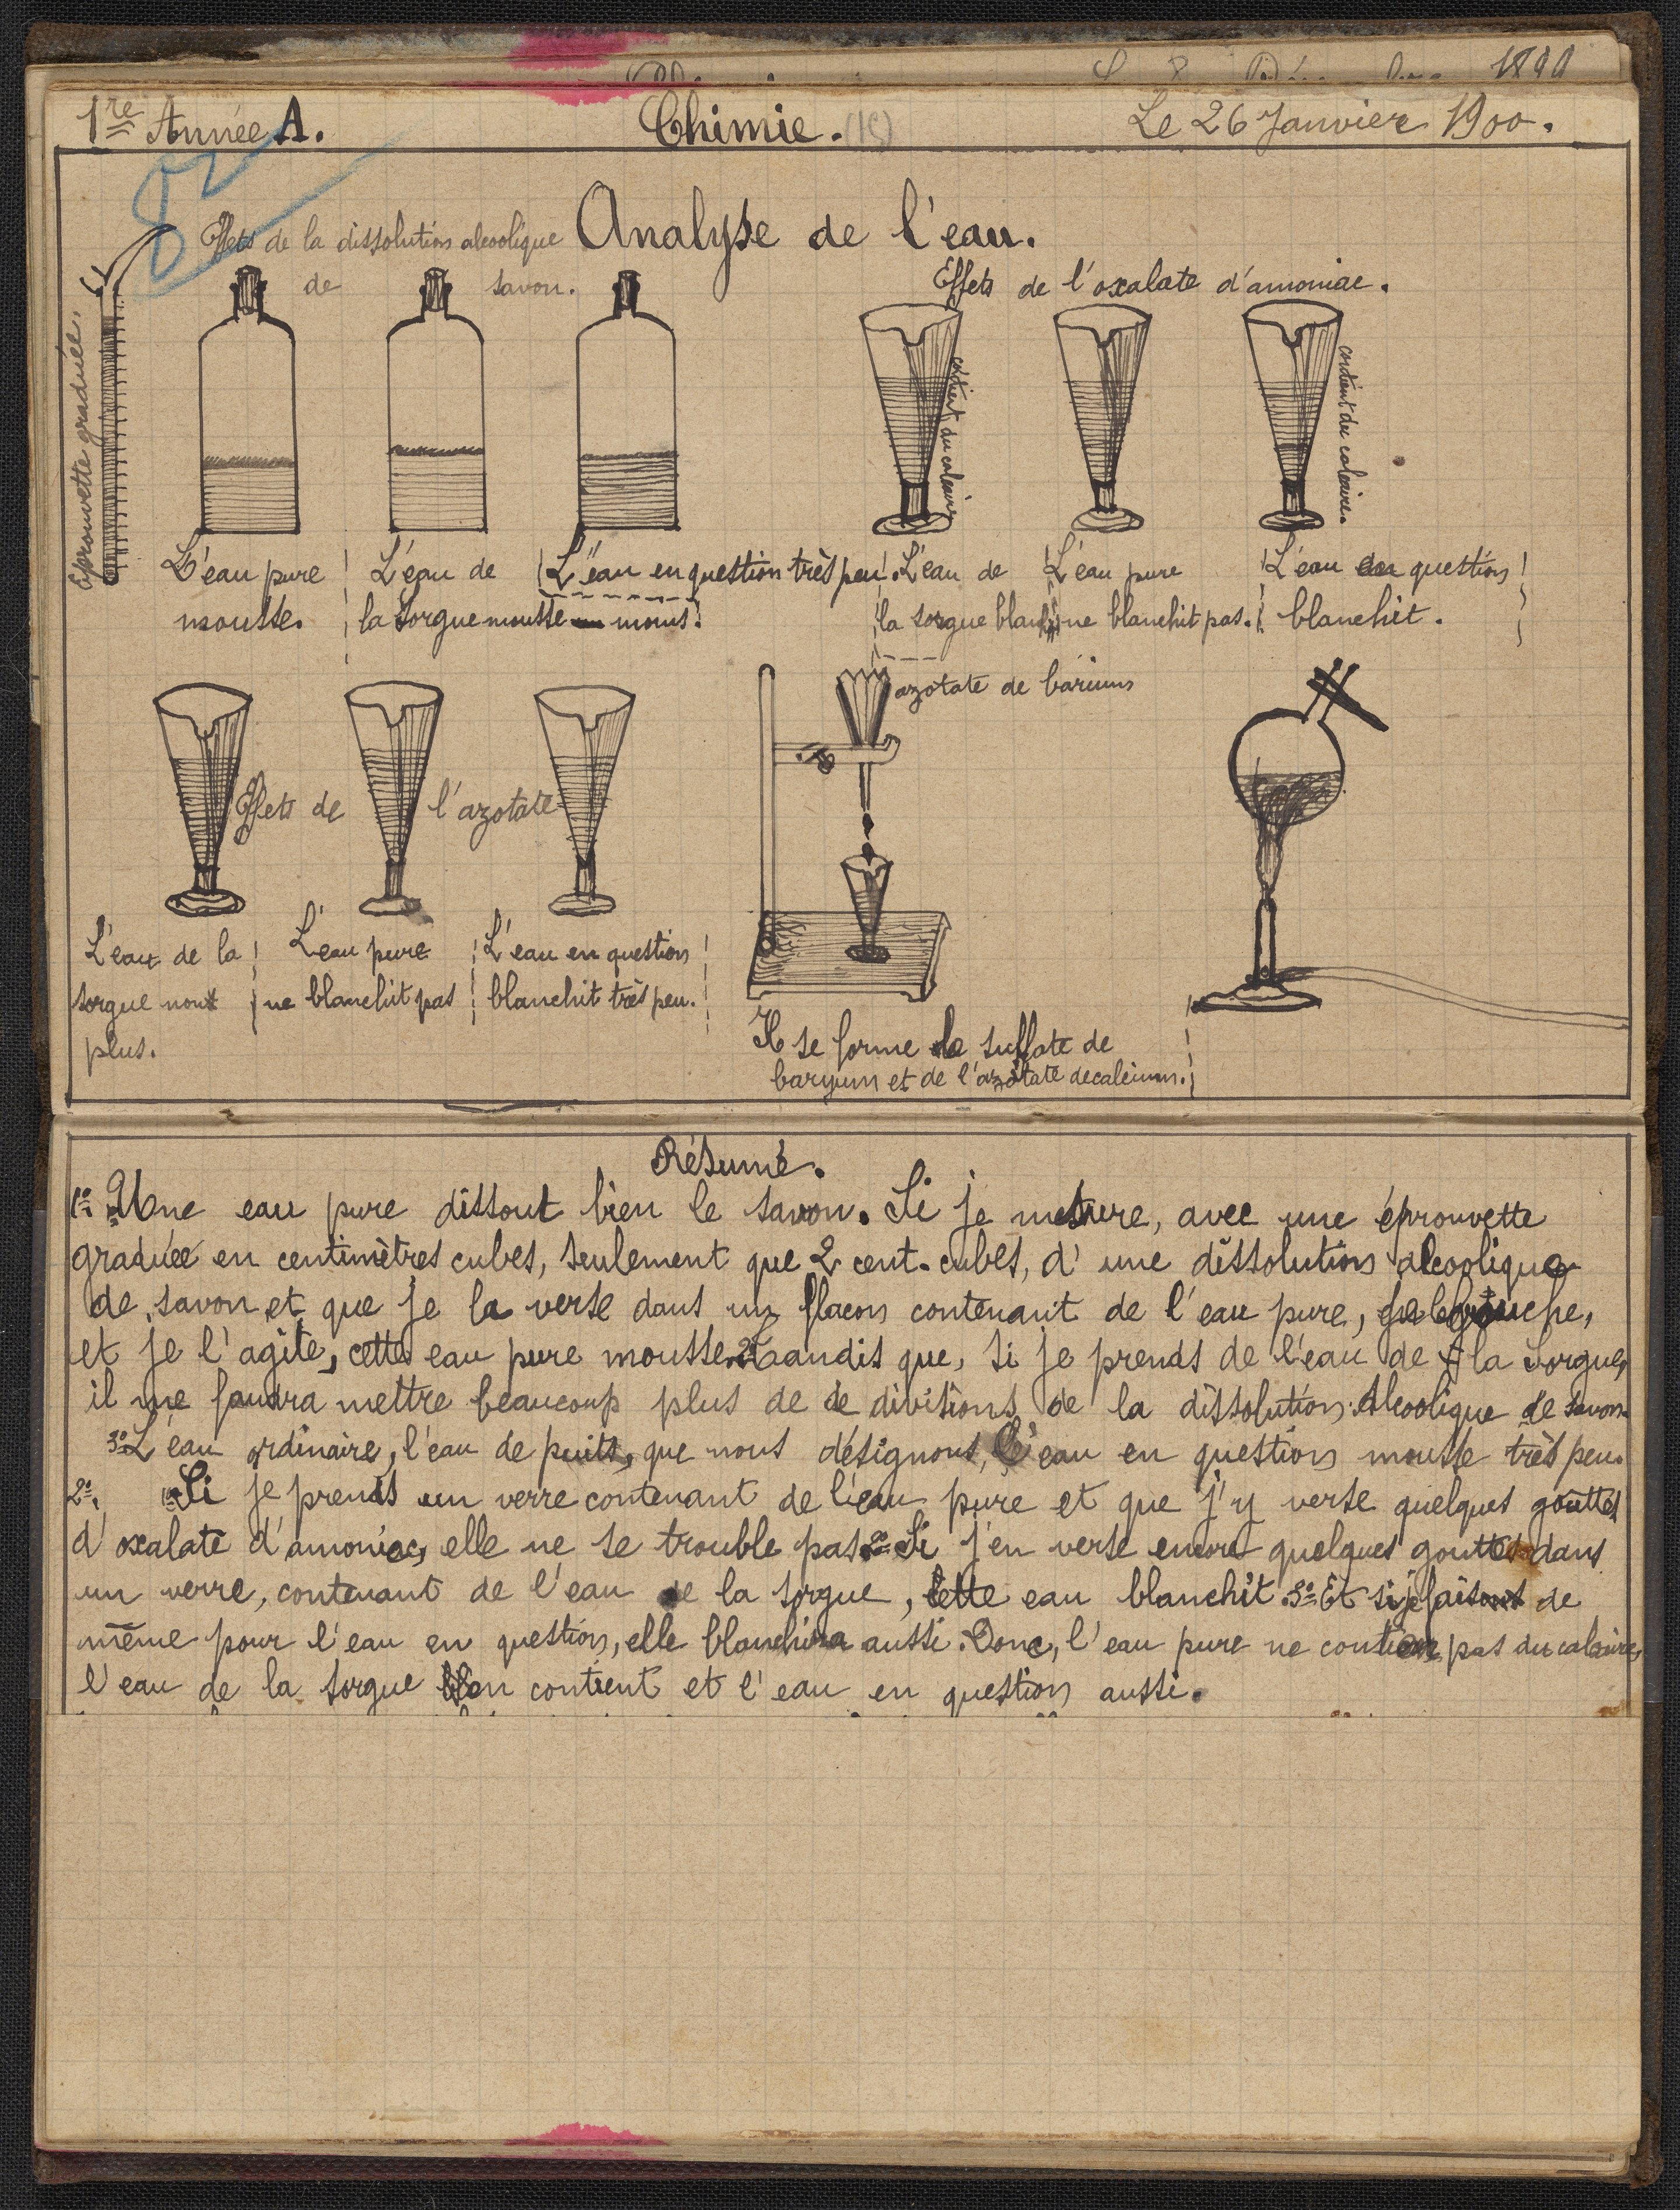 1899
1re Année A.
Chimie. (15)
Le 26 Janvier 1900.
Analyse de l'eau.
Effets de la dissolution alcoolique
de savon.
Eprouvette graduée.
L'eau pure
mousse.
L'eau de
la Sorgue mousse moins.
L'eau en question très peu.
Effets de l'oxalate d'amoniac.
contient du calcaire
contient du calcaire.
L'eau de
la sorgue blanchit
L'eau pure
ne blanchit pas.
L'eau en question
blanchit.
Effets de l'azotate
L'eau de la
sorgue non
plus.
L'eau pure
ne blanchit pas
L'eau en question
blanchit très peu.
azotate de barium
Il se forme de sulfate de
baryum et de l'azotate de calcium.
Résumé.
1o Une eau pure dissout bien le savon. Si je mesure, avec une éprouvette
graduée en centimètres cubes, seulement que 2 cent. cubes, d'une dissolution alcoolique
de savon et que je la verse dans un flacon contenant de l'eau pure, je le bouche,
et je l'agite, cette eau pure mousse. 2o Tandis que, si je prends de l'eau de la Sorgue,
il me faudra mettre beaucoup plus de de divisions de la dissolution Alcoolique de savon.
3o L'eau ordinaire, l'eau de puits, que nous désignons, l'eau en question mousse très peu.
2o. 1o Si je prends un verre contenant de l'eau pure et que j'y verse quelques gouttes
d'oxalate d'amoniac, elle ne se trouble pas. 2o Si j'en verse encore quelques gouttes dans
un verre, contenant de l'eau de la sorgue, cette eau blanchit. 3o Et si je faisons de
même pour l'eau en question, elle blanchira aussi. Donc, l'eau pure ne contient pas du calcaire,
l'eau de la sorgue en contient et l'eau en question aussi.